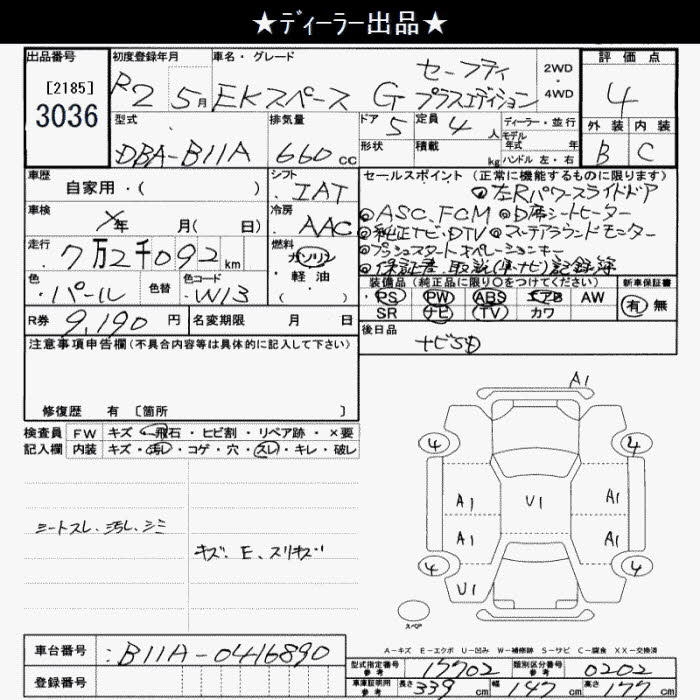 ★ディーラー出品★
出品番号
[2185]
3036
初度登録年月
R2 5月
車名・グレード
EKスペース G セーフティ プラスエディション
2WD
4WD
評価点
4
外装 内装
B C
型式
DBA-B11A
排気量
660 cc
ドア 5
定員 4 人
形状
積載 kg
ディーラー・並行
モデル年式 年
ハンドル 左・右
車歴
自家用・( )
シフト
IAT
車検
年 月( 日)
冷房
AAC
走行
7万2千092 km
燃料
ガソリン
・軽・油
・( )
色
パール
色替
色コード
W13
R券 9,190 円
名変期限 月 日
セールスポイント(正常に機能するものに限ります)
◎左Rパワースライドドア
◎ASC、FCM ◎D席シートヒーター
◎純正ナビ・DTV ◎マルチアラウンドモニター
◎プッシュスタートオペレーションキー
◎保証書、取説(車・ナビ)記録簿
装備品(純正品に限り○をつけてください)
PS PW ABS エアB AW
SR ナビ TV カワ
新車保証書
有 無
後日品
ナビSD
注意事項申告欄(不具合内容等は具体的に記入して下さい)
修復歴 有 [箇所 ]
検査員
記入欄
FW キズ・飛石・ヒビ割・リペア跡・×要
内装 キズ・汚レ・コゲ・穴・スレ・キレ・破レ
シートスレ、汚レ、シミ
キズ、E、スリキズ
A1
4 4
A1 U1 A1
A1 A1
4 4
U1
スペア
A-キズ E-エクボ U-凹み W-補修跡 S-サビ C-腐食 XX-交換済
車台番号
B11A-0416890
登録番号
型式指定番号 参考 17702
類別区分番号 参考 0202
車庫証明用 参考 長さ 339 cm 幅 147 cm 高さ 177 cm